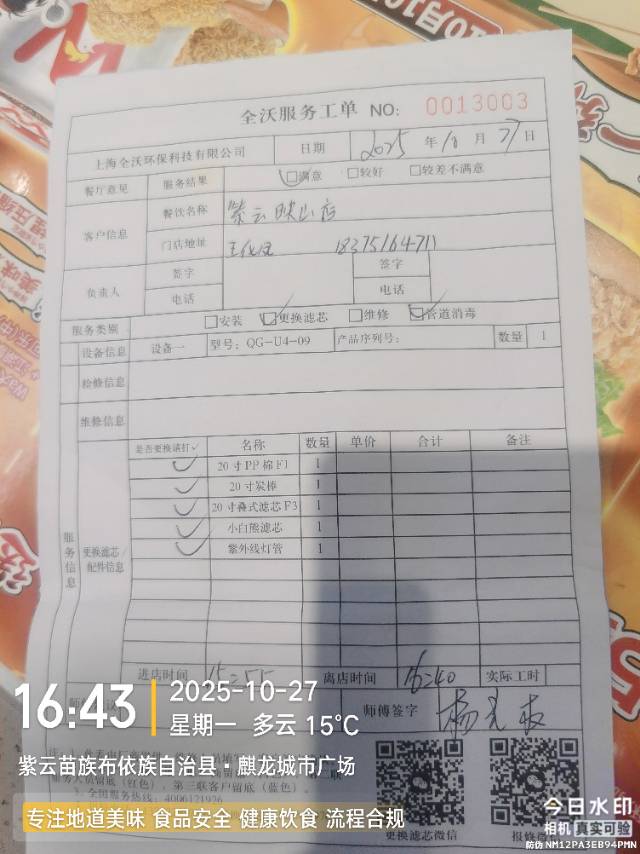 10月10
全沃服务工单 NO: 0013003
上海全沃环保科技有限公司 日期 2025 年 10 月 27 日
餐厅意见 服务结果 ☑满意 □较好 □较差不满意
客户信息 餐饮名称 紫云映山店
门店地址 18375164711
负责人 签字 签字
电话 电话
服务类别 □安装 ☑更换滤芯 □维修 ☑管道消毒
设备信息 设备一 型号: QG-U4-09 产品序列号: 数量 1
检修信息
维修信息
服务信息 更换滤芯/配件信息
是否更换请打√ 名称 数量 单价 合计 备注
√ 20寸PP棉F1 1
√ 20寸炭棒 1
√ 20寸叠式滤芯F3 1
√ 小白熊滤芯 1
√ 紫外线灯管 1
进店时间 15:55 离店时间 16:40 实际工时
师傅签字
务人员留底(红色), 第三联客户留底(蓝色)。
全国服务热线: 4006121926
更换滤芯微信 报修微信
16:43
2025-10-27
星期一 多云 15℃
紫云苗族布依族自治县·麒龙城市广场
专注地道美味 食品安全 健康饮食 流程合规
今日水印
相机 真实可验
防伪 NM12PA3EB94PMN